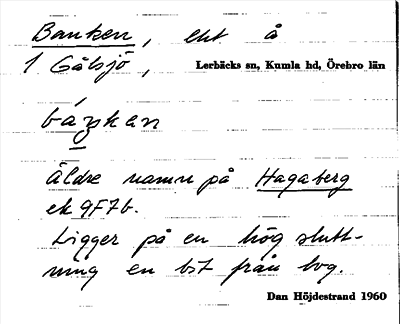 Banken, eht å
1 Gålsjö, Lerbäcks sn, Kumla hd, Örebro län
báŋkan
Äldre namn på Hagaberg
ek 9F7b.
Ligger på en hög slutt-
ning en bit från bvg.
Dan Höjdestrand 1960